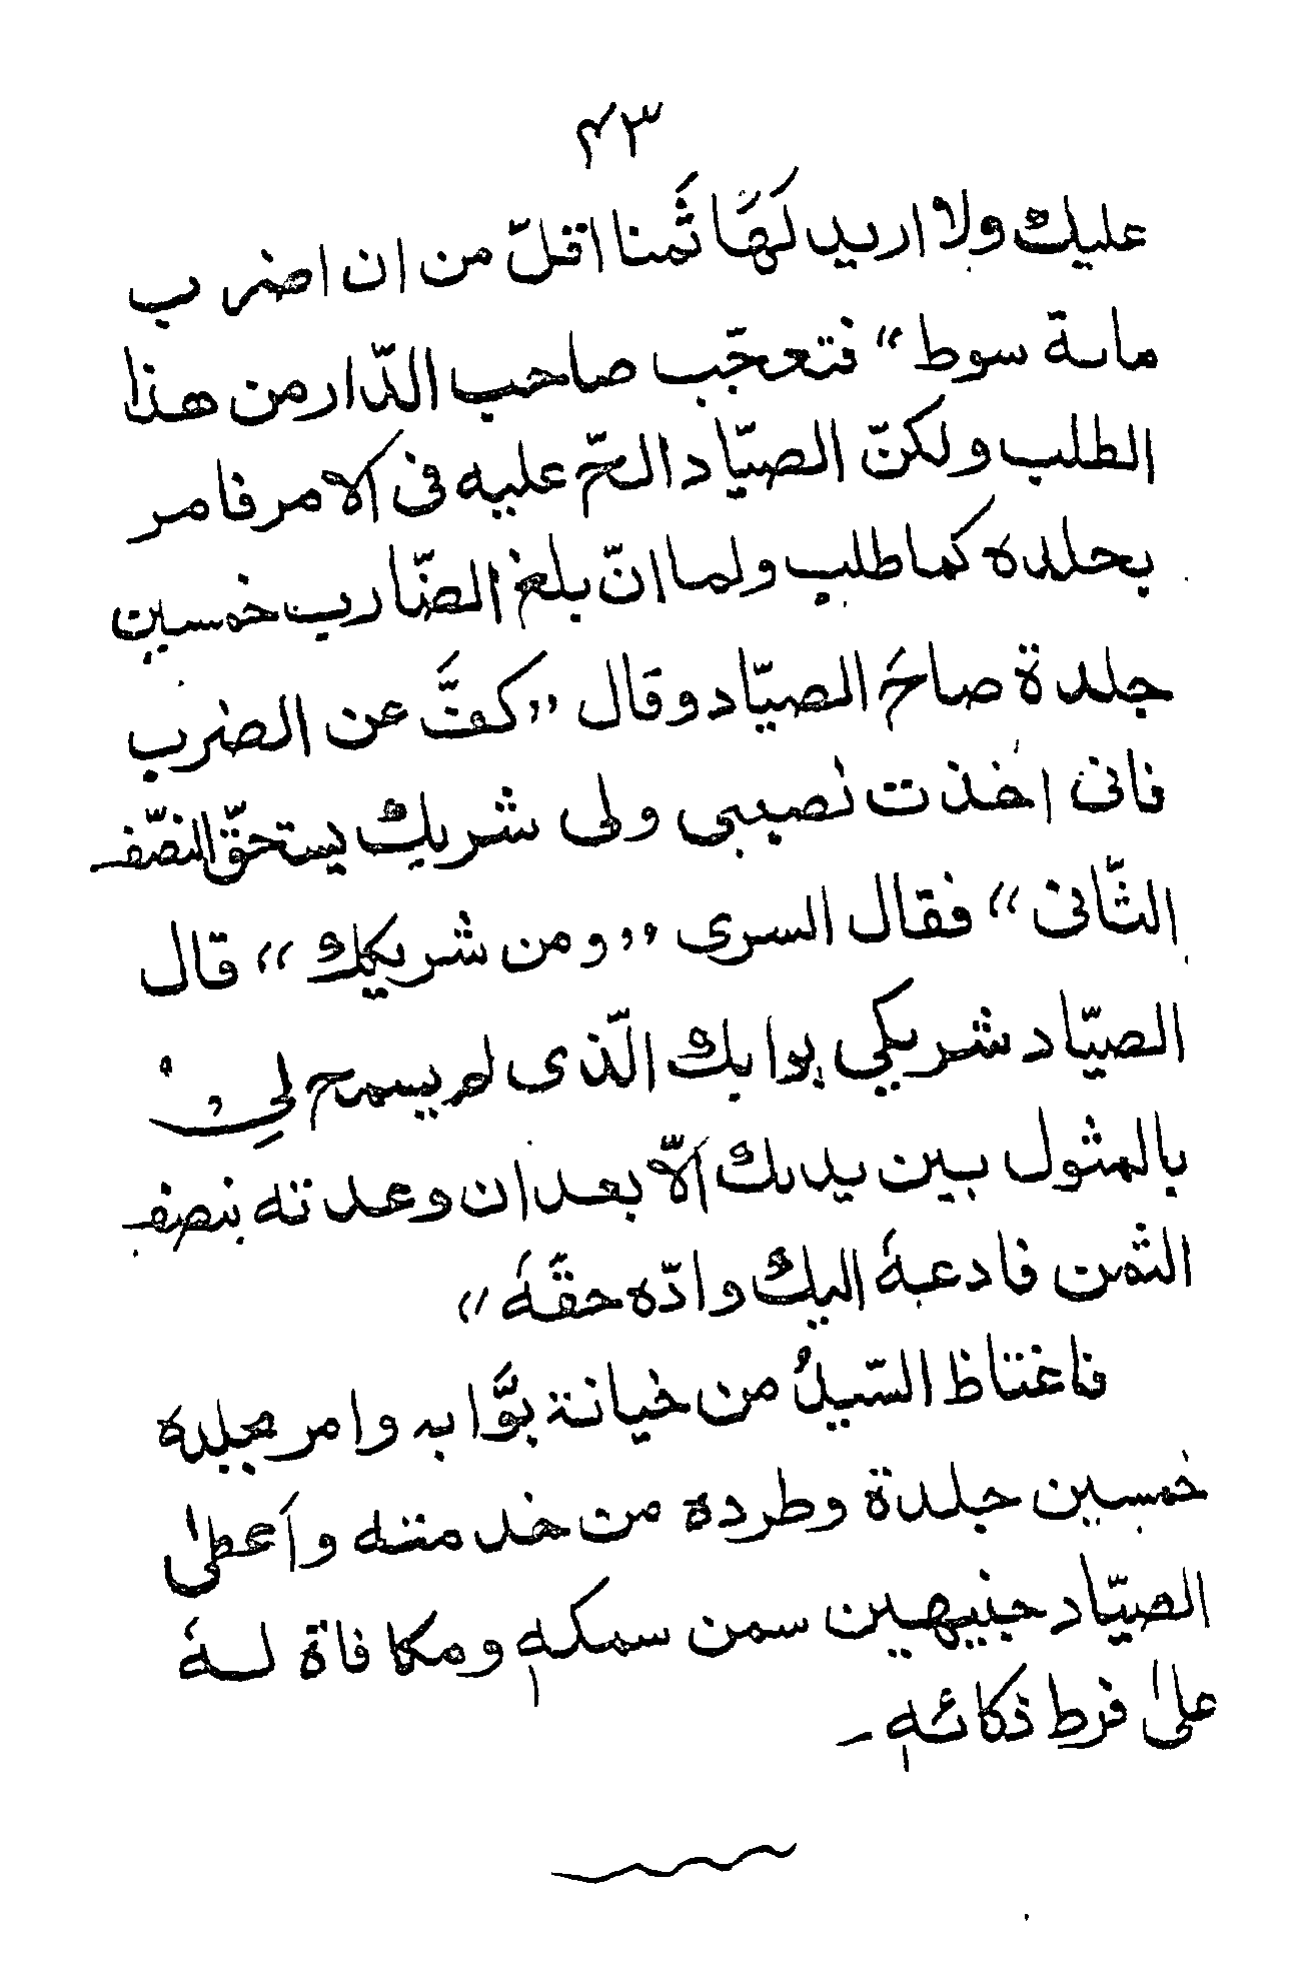 ۴۳
عليك ولا اريد لهَا ثَمنا اقلّ من ان اضرب
ماىة سوط” فتعجّب صاحب الدّار من هذا
الطلب ولكنّ الصيّاد الحّ عليه فى الامر فامر
بجلده كما طلب ولما انّ بلغ الضّارب خمسين
جلدة صاحَ الصيّاد وقال „كفَّ عن الضرب
فانى اخذت نصيبى ولى شريك يستحقّ النصّف
الثّانى” فقال السرى „ومن شريكك” قال
الصيّاد شريكي بوابك الّذى لم يسمح لىِ
بالمثول بين يديك الاّ بعد ان وعدته بنصف
الثمن فادعهٗ اليك وادّه حقهٗ”
فاغتاظ السّيدُ من خيانة بوَّابه وامر بجلده
خمسين جلدة وطرده من خدمته واَعطىٰ
الصيّاد جنيهين سمن سمكهٖ ومكافاة لهٗ
علىٰ فرط ذكائهٖ ۔